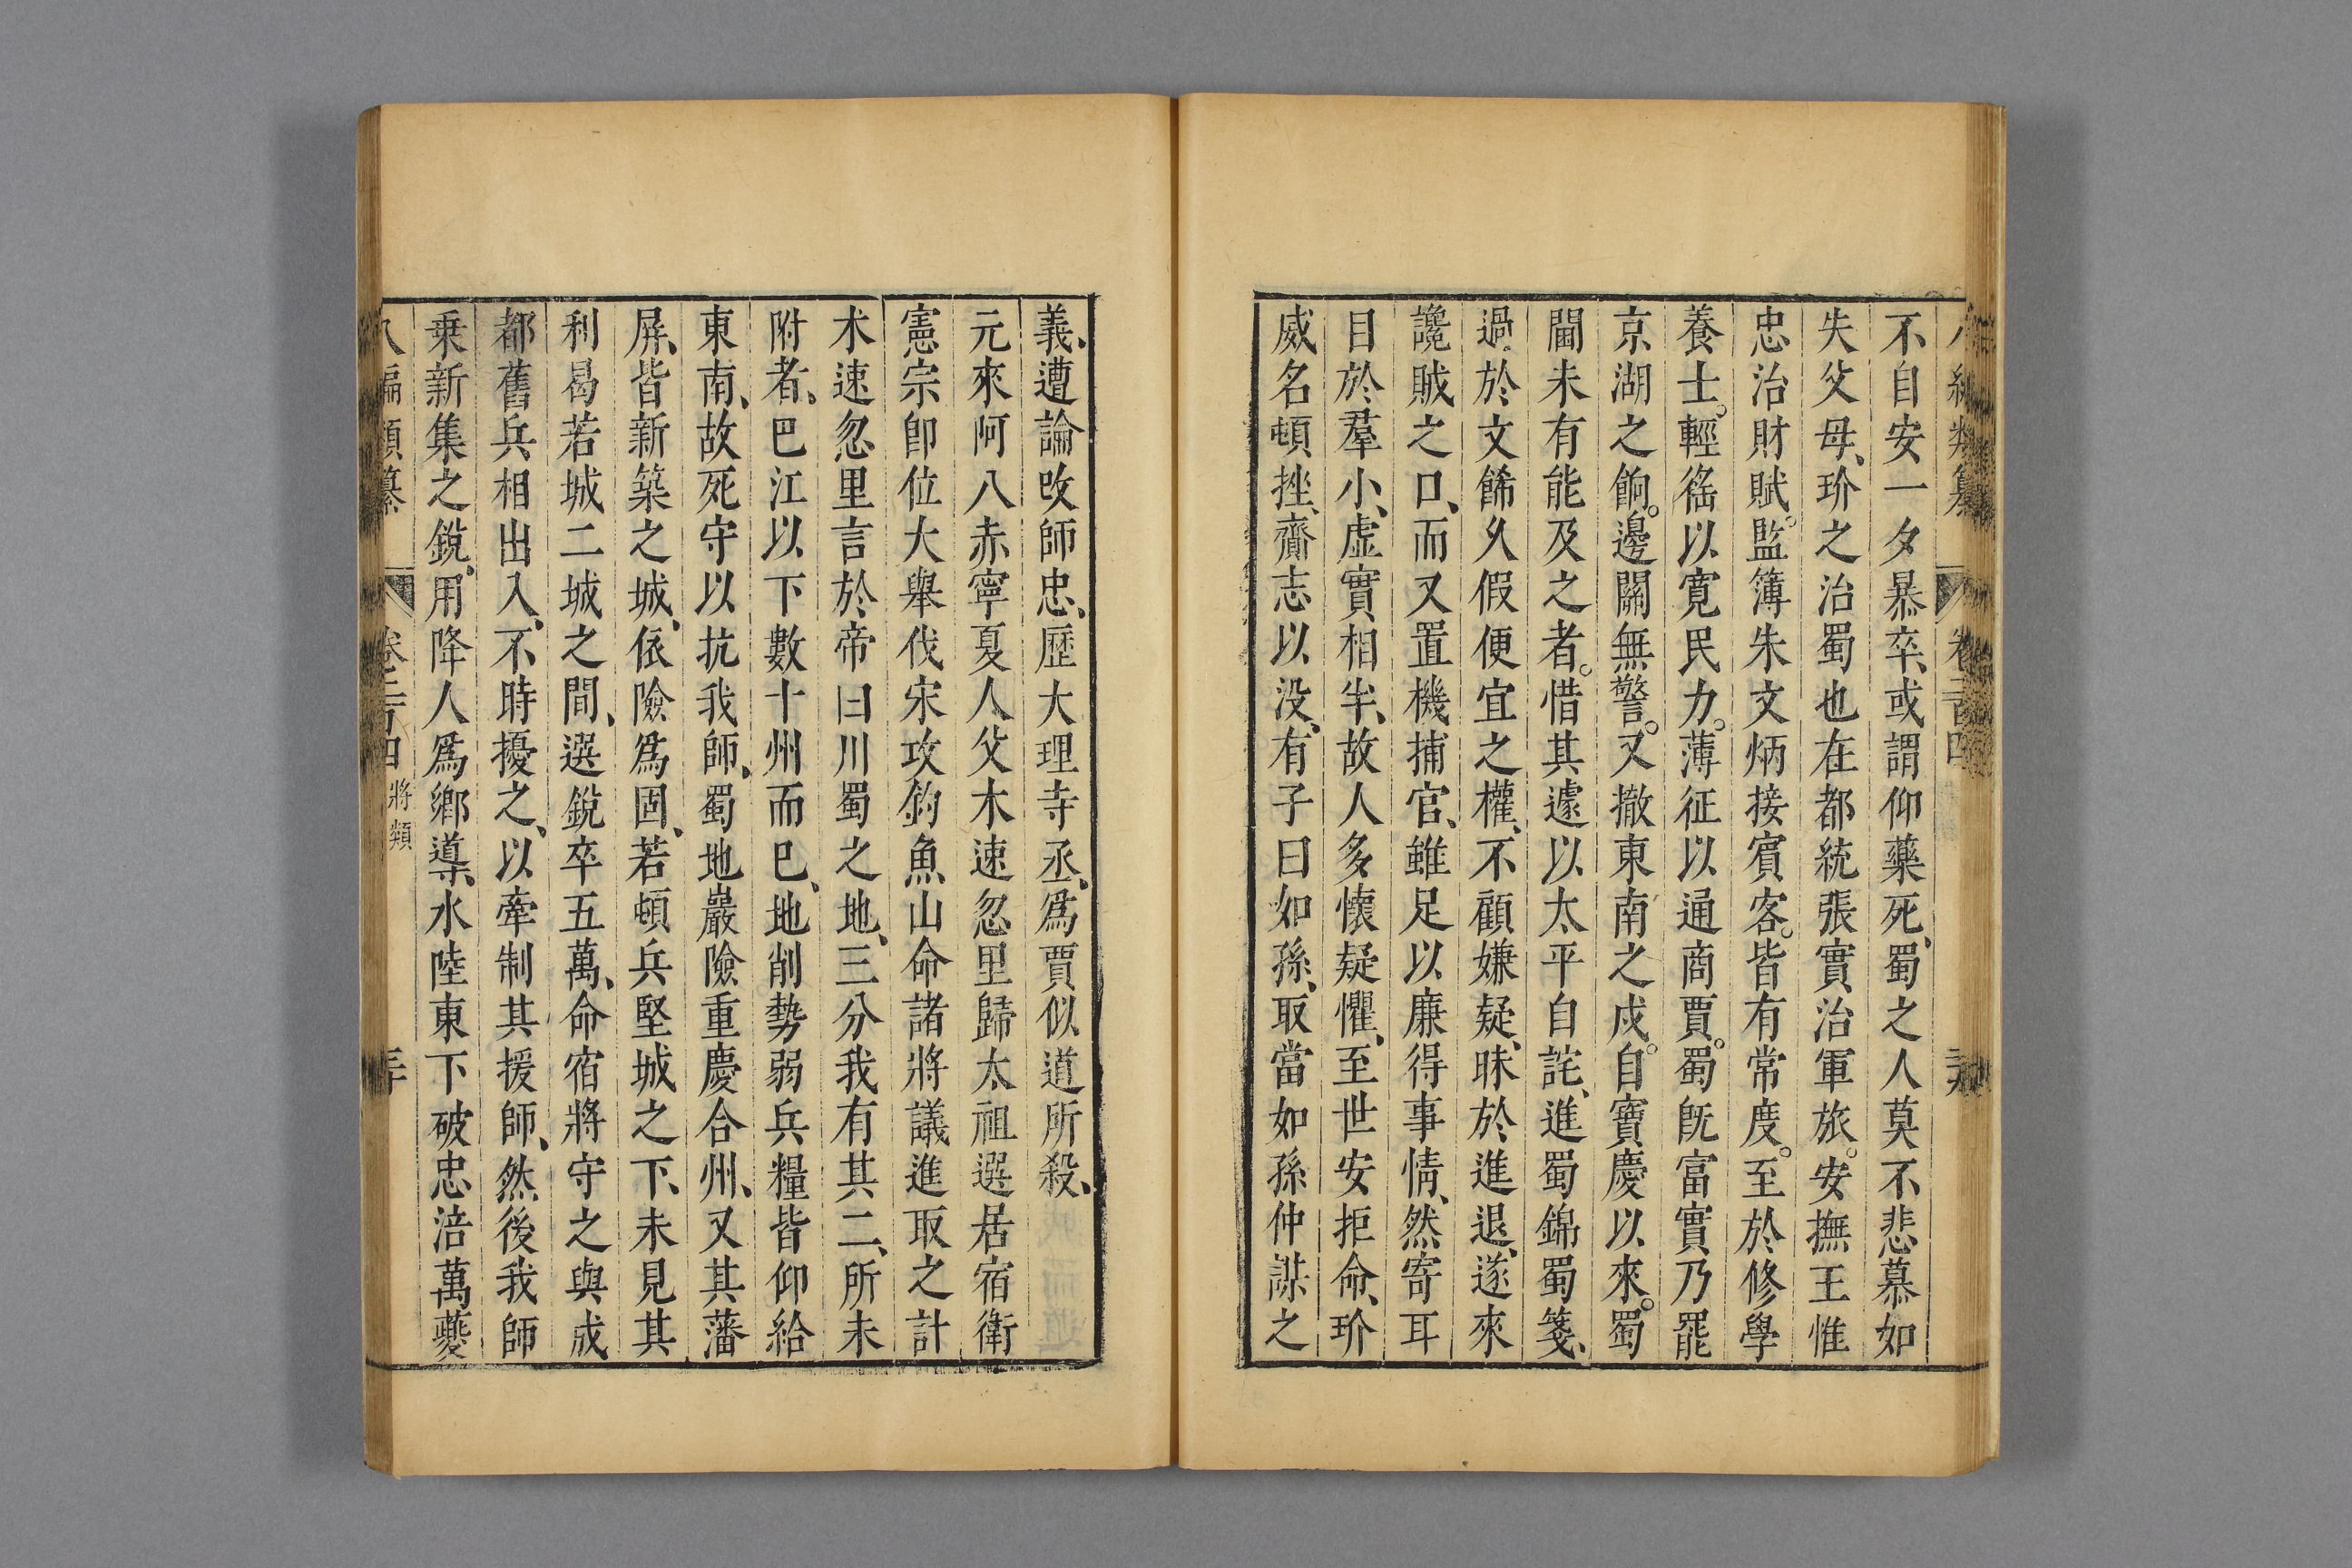 八編類纂 卷二百四 二十九
不自安一夕暴卒、或謂仰藥死、蜀之人莫不悲慕如
失父母、玠之治蜀也在都統張實治軍旅。安撫王惟
忠治財賦。監簿朱文炳接賓客。皆有常度。至於修學
養士。輕徭以寬民力。薄征以通商賈。蜀既富實乃罷
京湖之餉。邊關無警。又撤東南之戍。自寶慶以來。蜀
閫未有能及之者。惜其遽以太平自詫、進蜀錦蜀箋、
過於文餙乆假便宜之權、不顧嫌疑、昧於進退、遂來
讒賊之口、而又置機捕官、雖足以廉得事情、然寄耳
目於羣小、虛實相半、故人多懷疑懼、至世安拒命、玠
威名頓挫、齎志以没、有子曰如孫、取當如孫仲謀之
義、遭論攺師忠、歷大理寺丞、爲賈似道所殺、
元來阿八赤寧夏人父木速忽里歸太祖選居宿衛
憲宗卽位大舉伐宋攻釣魚山命諸將議進取之計
木速忽里言於帝曰川蜀之地、三分我有其二、所未
附者、巴江以下數十州而已、地削勢弱兵糧皆仰給
東南、故死守以抗我師、蜀地巖險重慶合州、又其藩
屏、皆新築之城、依險爲固、若頓兵堅城之下、未見其
利曷若城二城之間、選銳卒五萬、命宿將守之與成
都舊兵相出入、不時擾之、以牽制其援師、然後我師
乗新集之銳、用降人爲鄉導、水陸東下破忠涪萬夔
八編類纂 卷二百四 將類 三十